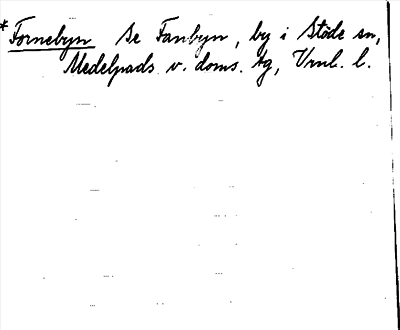 *Fornebyn se Fanbyn, by i Stöde sn,
Medelpads v. doms. tg, Vrnl. l.